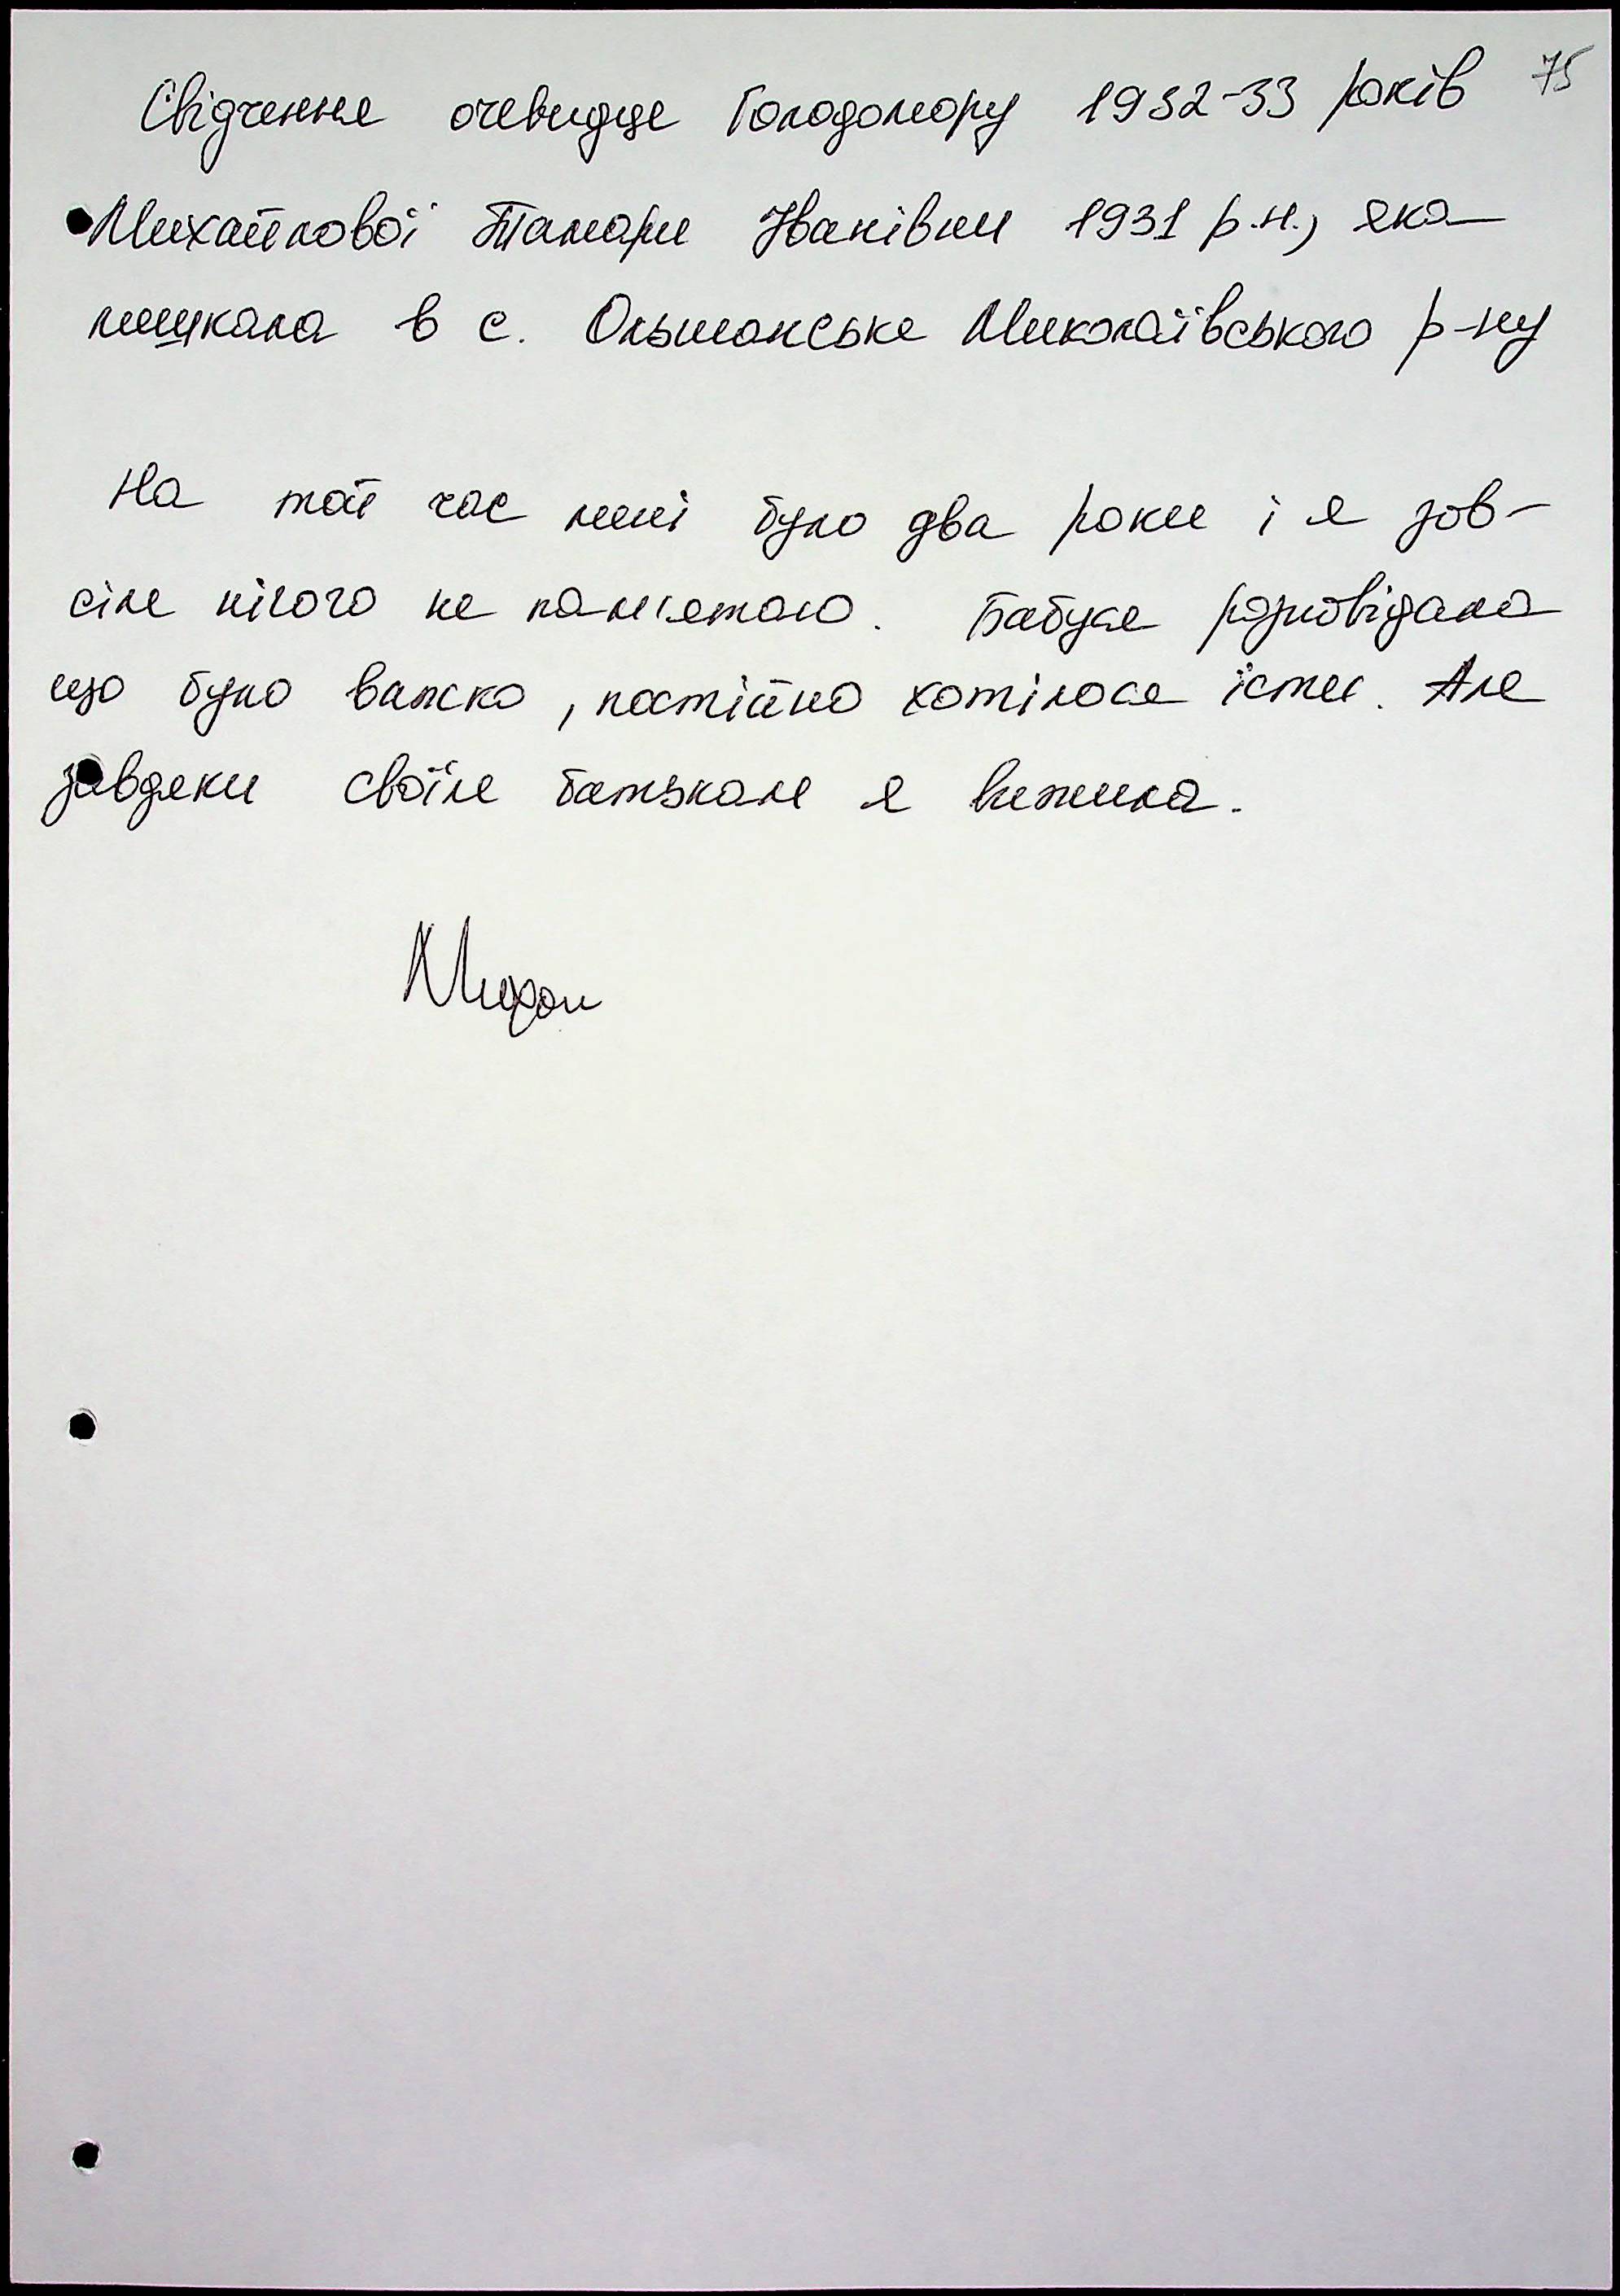 75
Свідчення очевидця Голодомору 1932-33 років
Михайлової Тамари Іванівни 1931 р.н., яка
мешкала в с. Ольшанське Миколаївського р-ну
На той час мені було два роки і я зов-
сім нічого не пам'ятаю. Бабуся розповідала
що було важко, постійно хотілося їсти. Але
завдяки своїм батькам я вижила.